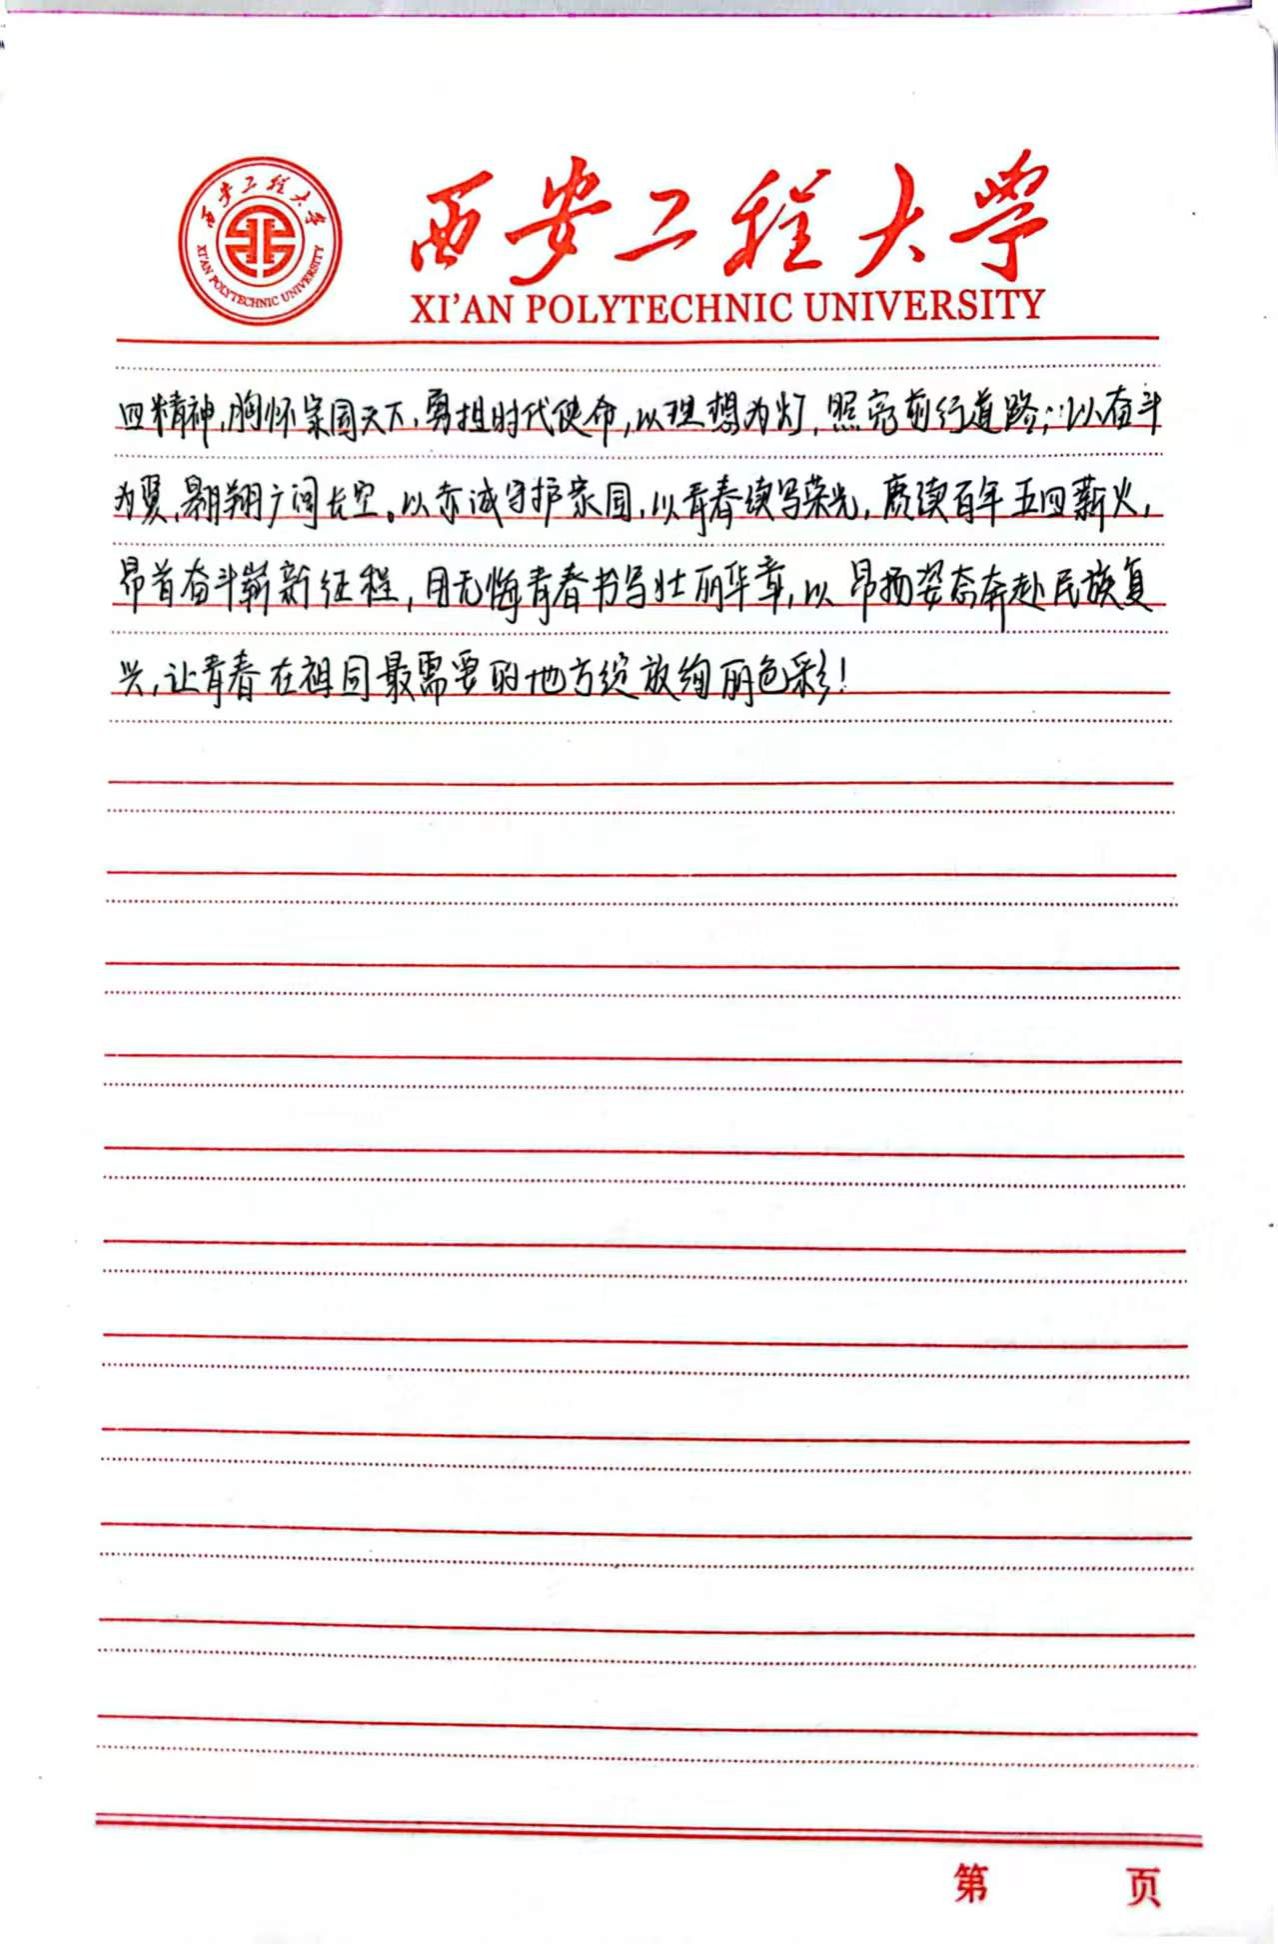 西安工程大学
XI'AN POLYTECHNIC UNIVERSITY
西安工程大学
XI'AN POLYTECHNIC UNIVERSITY
四精神,胸怀家国天下,勇担时代使命,以理想为灯,照亮前行道路;以奋斗
为翼,翱翔广阔长空。以赤诚守护家园,以青春续写荣光,赓续百年五四薪火,
昂首奋斗崭新征程,用无悔青春书写壮丽华章,以昂扬姿态奔赴民族复
兴,让青春在祖国最需要的地方绽放绚丽色彩!
第 页